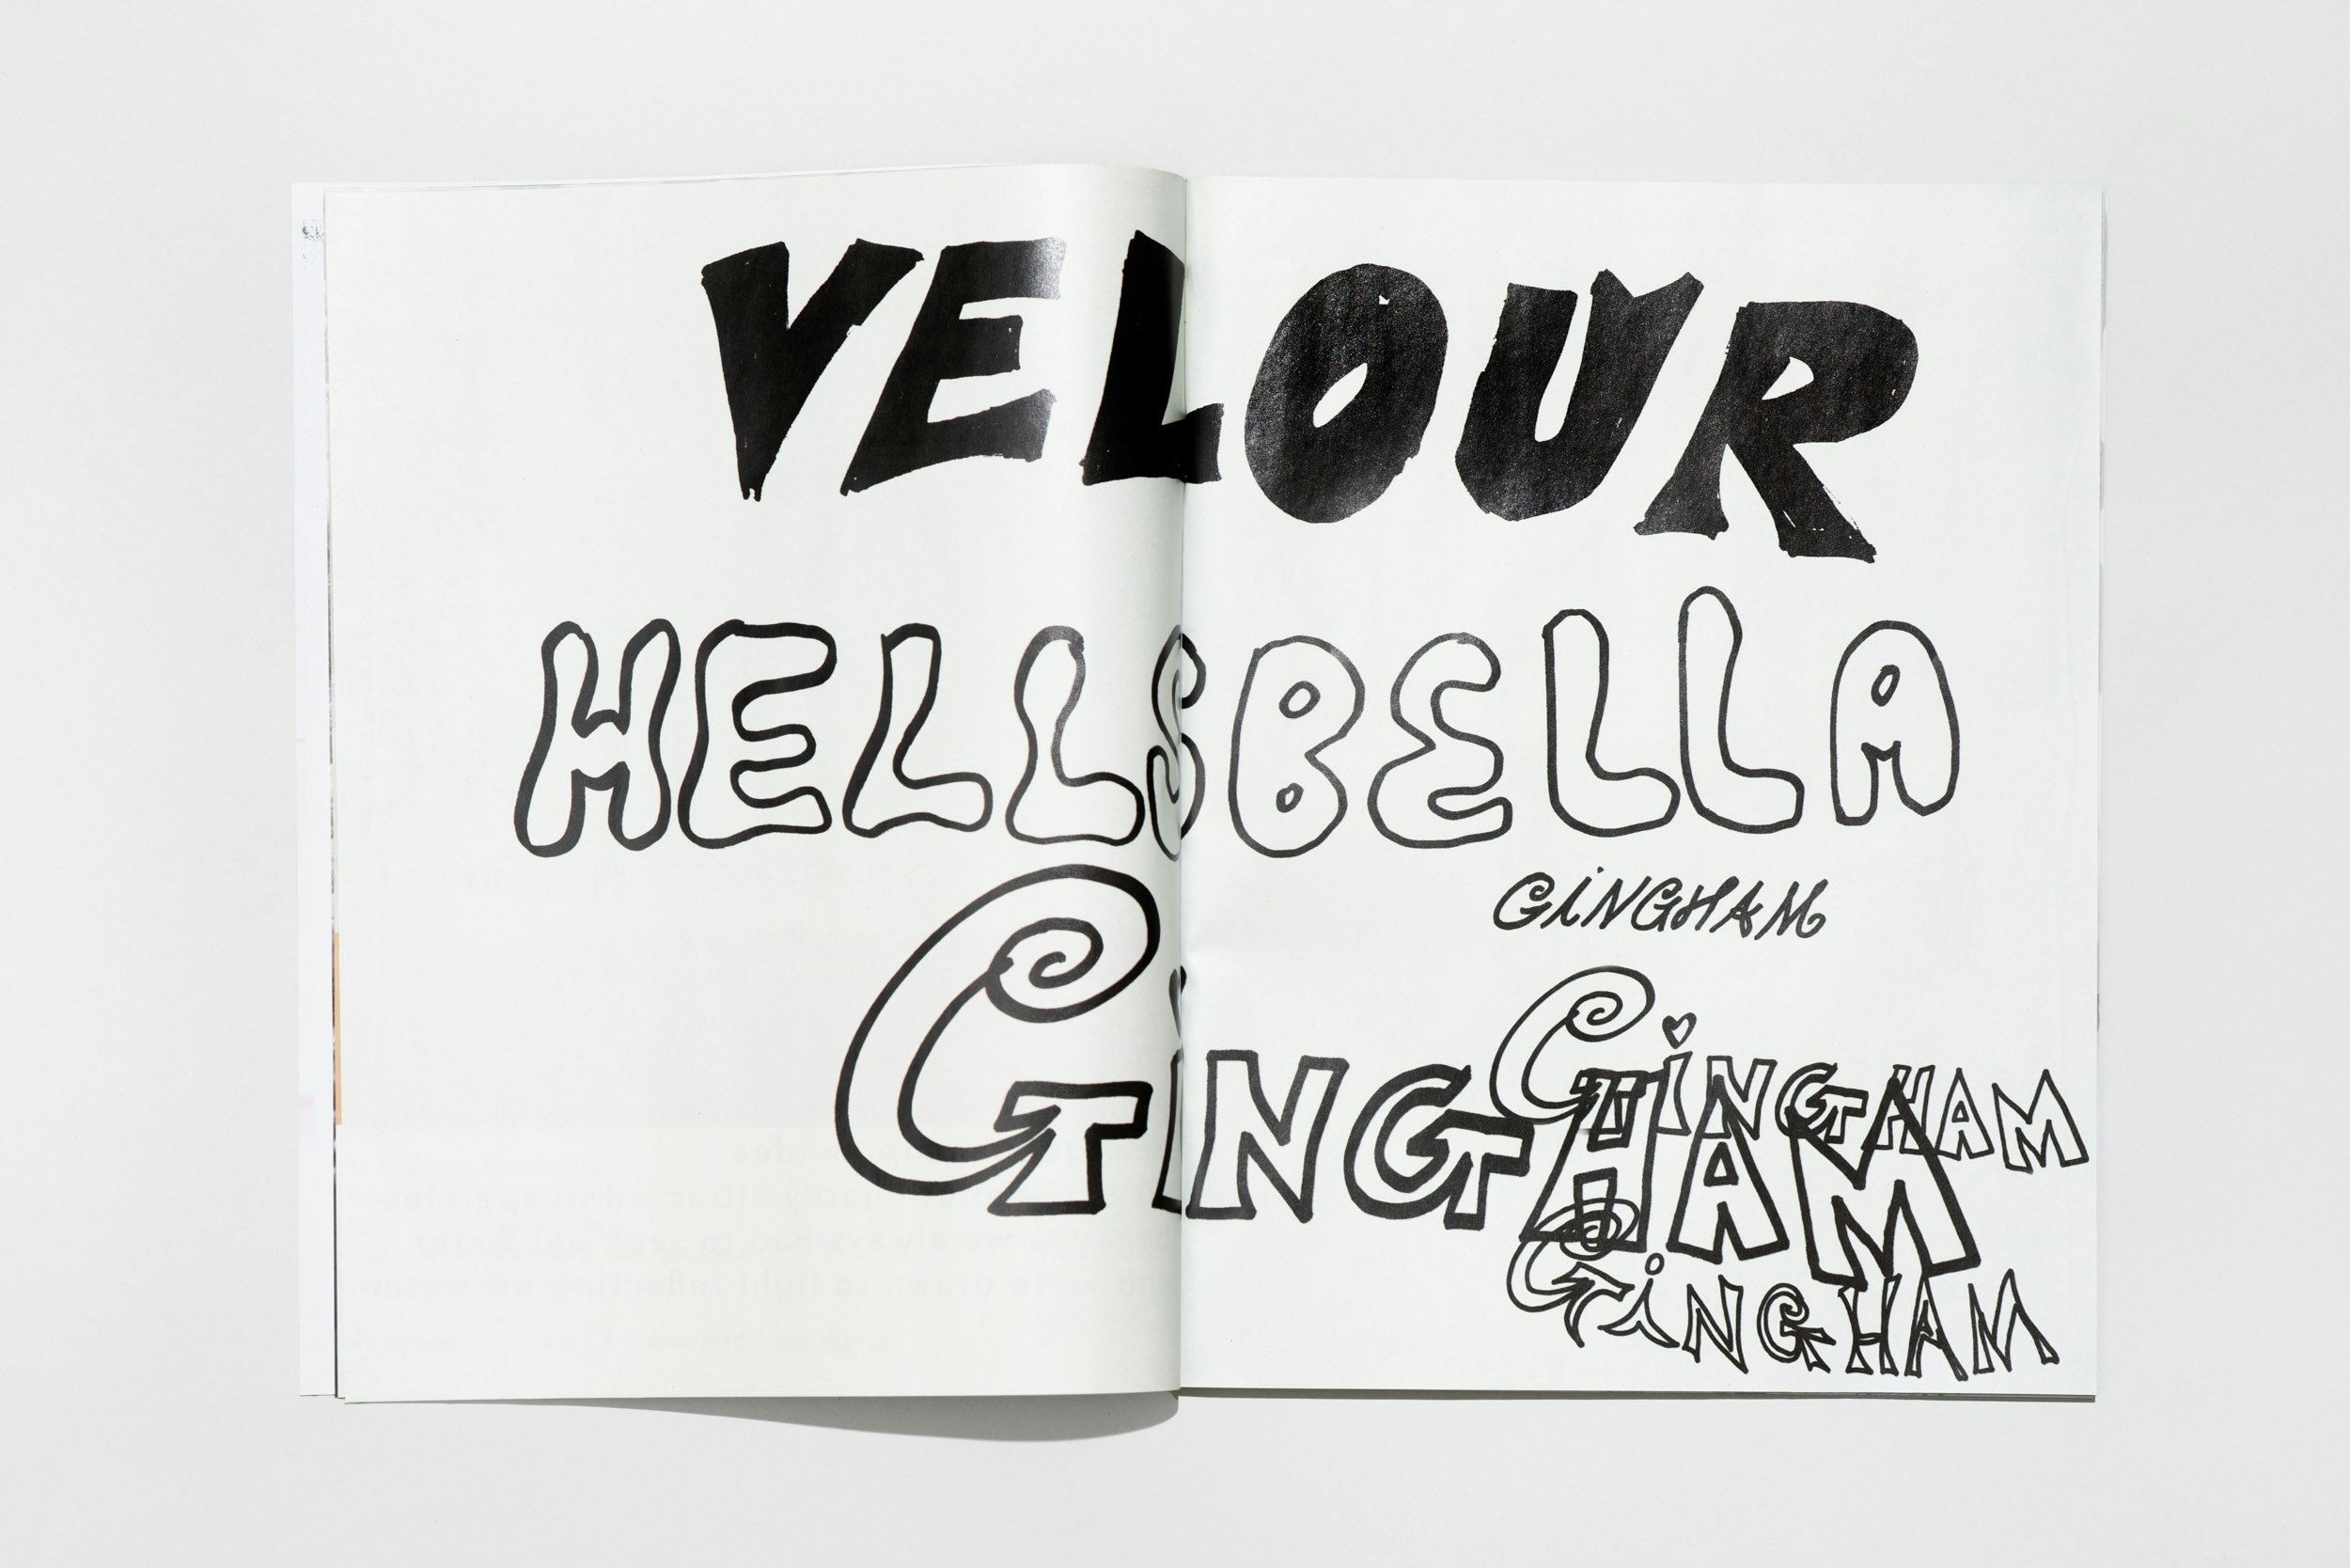 VELOUR
HELLSBELLA
GiNGHAM
GiNGHAM
GiNGHAM
GiNGHAM